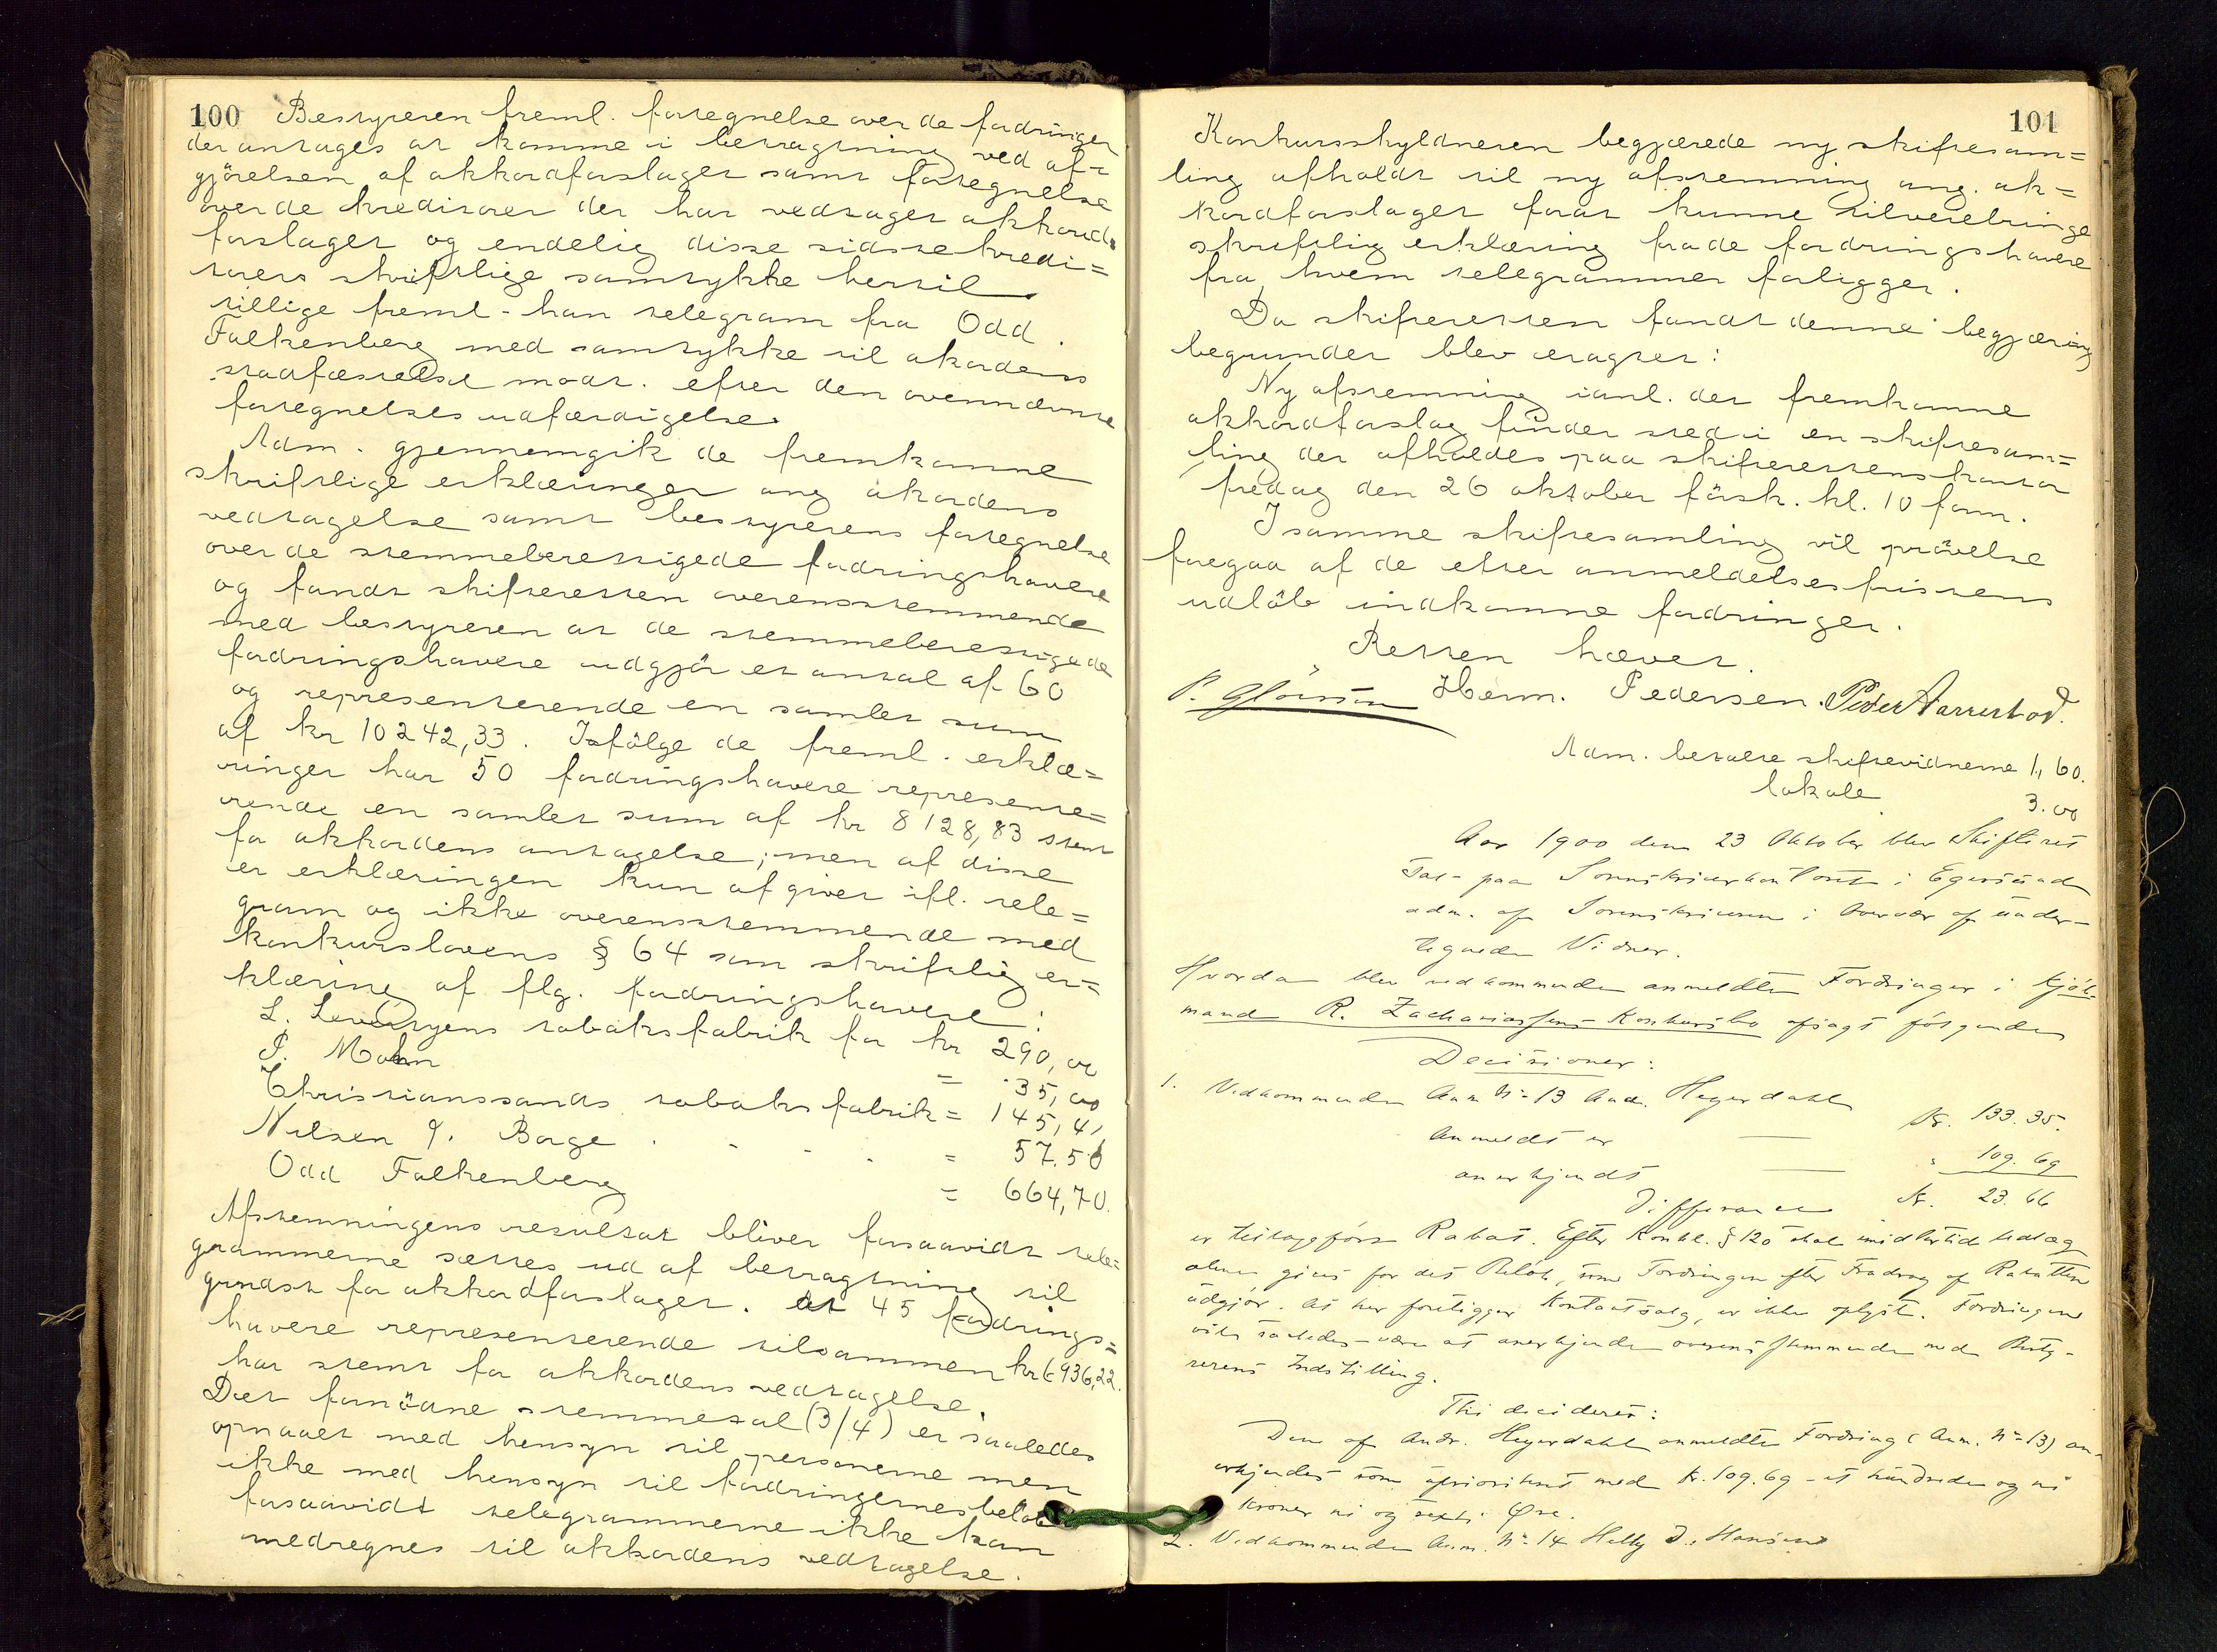 100 Bestyreren freml. fortegnelse over de fordringer
der antages at komme i betragtning ved af-
gjörelsen af akkordforslaget samt fortegnelse
over de kreditorer der har vedtaget akkord-
forslaget og endelig disse sidste kredi=
torers skriftlige samtykke hertil.
tillige freml. han telegram fra Odd
Falkenberg med samtykke til akordens
stadfæstelse modt. efter den ovennævnte
fortegnelses udfærdigelse.
Adm. gjennemgik de fremkomne
skriftlige erklæringer ang akordens
vedtagelse samt bestyrerens fortegnelse
over de stemmeberettigede fordringshavere
og fandt skifteretten overensstemmende
med bestyreren at de stemmeberettigede
fordringshavere udgjör et antal af 60
og representerende en samlet sum
af kr 10242,33. Ifölge de freml. erklæ=
ringer har 50 fordringshavere represente=
rende en samlet sum af kr 8128,83 stemt
for akkordens antagelse; men af disse
er erklæringen kun afgivet ifl. tele=
gram og ikke overensstemmende med
konkurslovens § 64 som skriftlig er=
klæring af flg. fordringshavere:
L. tobaksfabrik for kr 290,00
P. Mohn = 35,00
Christianssands tobaksfabrik = 145,41
Nilsen & Borge = 57.50
Odd Falkenberg = 664,70.
Afstemningens resultat bliver forsaavidt tele=
grammerne sættes ud af betragtning til
gundst for akkordforslaget. At 45 fordrings=
havere representerende tilsammen kr 6936,22.
har stemt for akkordens vedtagelse.
Det fornödne stemmetal (3/4) er saaledes
opnaaet med hensyn til personerne men
ikke med hensyn til fordringernes belöb
forsaavidt telegrammerne ikke kan
medregnes til akkordens vedtagelse.
101
Konkursskyldneren begjærede ny skiftesam=
ling afholdt til ny afstemning ang. ak=
kordforslaget forat kunne tilveiebringe
skriftlig erklæring fra de fordringshavere
fra hvem telegrammer forligger.
Da skifteretten fandt denne begjæring
begrundet blev eragtet:
Ny afstemning ianl. det fremkomne
akkordforslag finder sted i en skiftesam=
ling der afholdes paa skifterettens kontor
fredag den 26 oktober först. kl. 10 form.
I samme skiftesamling vil prövelse
foregaa af de efter anmeldelsesfristens
udlöb indkomne fordringer.
Retten hævet.
Herm. Pedersen. Peder Aarrestad.
Adm. betalte skiftevidnerne 1,60.
lokale 3.00
Aar 1900 den 23 Oktober blev Skifteret
sat paa Sorenskriverkontoret i Egersund
adm. af Sorenskriveren i Overvær af under-
tegnede Vidner.
Hvorda blev vedkommende anmeldte Fordringer i Kjöb-
mand R. Zachariassens Konkursbo afsagt følgende
Decisioner:
1. Vedkommende Anm. No 13 And. Heyerdahl
Anmeldt er Kr. 133.35.
anerkjendt " 109.69
Differance Kr. 23.66
er tilbageført Rabat. Efter Konkl. § 120 skal imidlertid Udlæg
alene gives for det Beløb, som Fordringen efter Fradrag af Rabatten
udgjør. At her foreligger Kontantsalg, er ikke oplyst. Fordringen
vil saaledes være at anerkjende overensstemmende med Besty-
rerens Indstilling.
Thi decideres:
Den af Andr. Heyerdahl anmeldte Fordring (Anm. No 13) an-
erkjendes som uprioriteret med Kr. 109.69 - et hundrede og ni
Kroner ni og sexti Øre.
2. Vedkommende Anm. No 14 D. Hansen